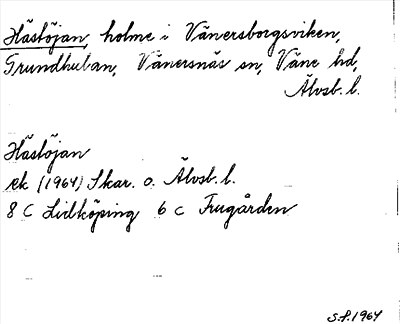 Hästöjan, holme i Vänersborgsviken,
Grundhulan, Vänersnäs sn,Väne hd,
Älvsb. l.
Hästöjan
ek (1964) Skar. o. Älvsb. l.
8 C Lidköping 6 c Frugården
S.F. 1964